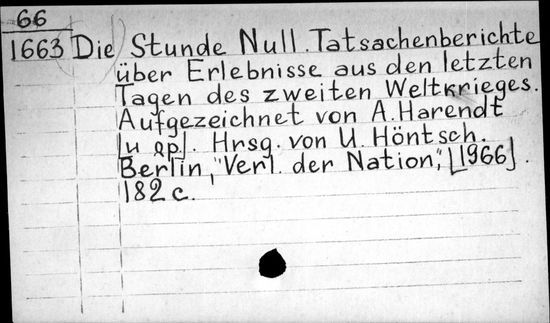 66
1663 (Die) Stunde Null. Tatsachenberichte
über Erlebnisse aus den letzten
Tagen des zweiten Weltkrieges.
Aufgezeichnet von A. Harendt
[и др]. Hrsg. von U. Höntsch.
Berlin, "Verl. der Nation", [1966].
182 с.